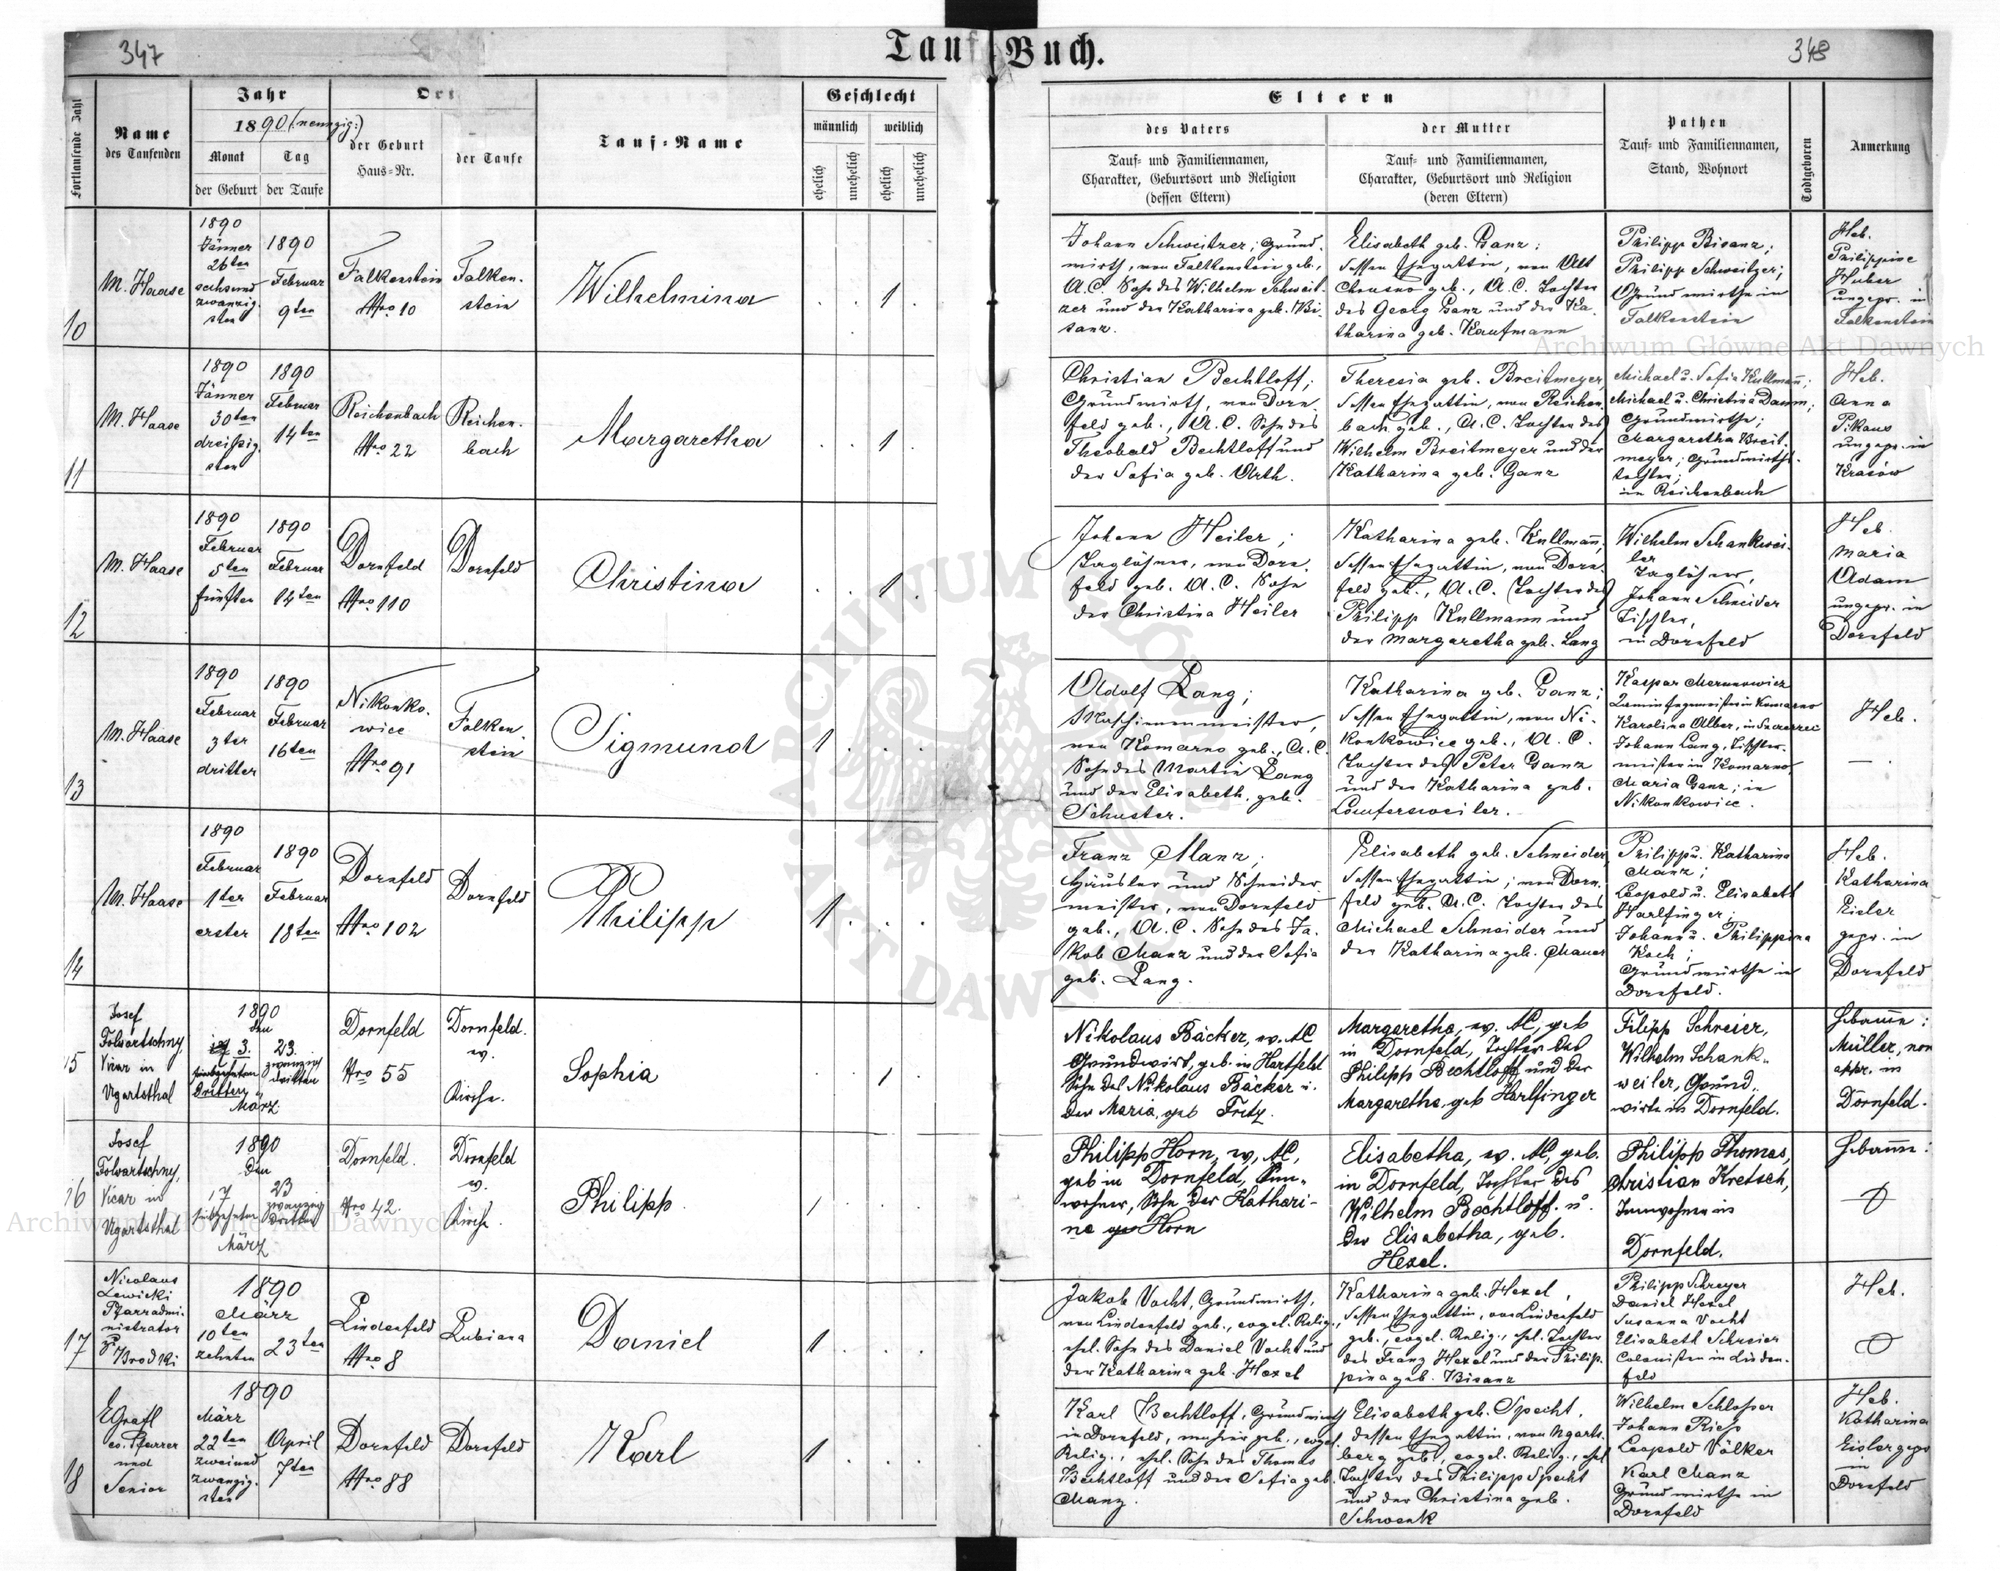 347
Tauf-Buch.
348
Fortlaufende Zahl
Name
des Taufenden
Jahr
1890 (neunzig:)
Monat
der Geburt
Tag
der Taufe
Ort
der Geburt
Haus=Nr.
der Taufe
Tauf=Name
Geschlecht
männlich
weiblich
ehelich
unehelich
ehelich
unehelich
Eltern
des Vaters
Tauf= und Familiennamen,
Charakter, Geburtsort und Religion
(dessen Eltern)
der Mutter
Tauf= und Familiennamen,
Charakter, Geburtsort und Religion
(deren Eltern)
Pathen
Tauf= und Familiennamen,
Stand, Wohnort
Todtgeboren
Anmerkung
10
M. Haase
1890
Jänner
26ten
sechsund
zwanzig.
sten
1890
Februar
9ten
Falkenstein
Nro 10
Falken.
stein
Wilhelmina
1
Johann Schweitzer; Grund.
wirth, von Falkenstein geb.,
A.C. Sohn des Wilhelm Schweit.
zer und der Katharina geb. Bi.
sanz.
Elisabeth geb. Ganz;
dessen Ehegattin, von Alt
Chrusno geb., A.C. Tochter
des Georg Ganz und der Ka.
tharina geb. Kaufmann
Philipp Bisanz;
Philipp Schweitzer;
Grundwirthe in
Falkenstein
Heb.
Philippine
Huber
ungepr. in
Falkenstein
11
M. Haase
1890
Jänner
30ten
dreißig.
sten
1890
Februar
14ten
Reichenbach
Nro 22
Reichen.
bach
Margaretha
1
Christian Bechtloff;
Grundwirth, von Dorn.
feld geb., A.C. Sohn des
Theobald Bechtloff und
der Sofia geb. Orth.
Theresia geb. Breitmeyer,
dessen Ehegattin, von Reichen.
bach geb., A.C. Tochter des
Wilhelm Breitmeyer und der
Katharina geb. Ganz
Michael u. Sofia Kullmann;
Michael u. Christina Damm;
Grundwirthe;
Margaretha Breit.
meyer; Grundwirths.
tochter;
in Reichenbach
Heb.
Anna
Pikaus
ungepr. in
Krasów
12
M. Haase
1890
Februar
5ten
fünften
1890
Februar
14ten
Dornfeld
Nro 110
Dornfeld
Christina
1
Johann Heiler;
Taglöhner, von Dorn.
feld geb. A.C. Sohn
der Christina Heiler
Katharina geb. Kullmann,
dessen Ehegattin, von Dorn.
feld geb., A.C. Tochter des
Philipp Kullmann und
der Margaretha geb. Lang
Wilhelm Schankwei.
ler
Taglöhner,
Johann Schneider
Tischler,
in Dornfeld
Heb.
Maria
Adam
ungepr. in
Dornfeld
13
M. Haase
1890
Februar
3ter
dritter
1890
Februar
16ten
Nikonko.
wice
Nro 91
Falken.
stein
Sigmund
1
Adolf Lang;
Maschinenmeister,
von Komarno geb., A.C.
Sohn des Martin Lang
und der Elisabeth. geb.
Schuster.
Katharina geb. Ganz;
dessen Ehegattin, von Ni.
konkowice geb., A.C.
Tochter des Peter Ganz
und der Katharina geb.
Laufersweiler.
Karolina Alber,
Johann Lang, Tischler.
meister in Komarno,
Maria Ganz; in
Nikonkowice.
Heb.
— .
14
M. Haase
1890
Februar
1ter
erster
1890
Februar
18ten
Dornfeld
Nro 102
Dornfeld
Philipp
1
Franz Manz;
Häusler und Schneider.
meister, von Dornfeld
geb., A.C. Sohn des Ja.
kob Manz und der Sofia
geb. Lang.
Elisabeth geb. Schneider
dessen Ehegattin; von Dorn.
feld geb. A.C. Tochter des
Michael Schneider und
der Katharina geb. Mauer
Philipp u. Katharina
Manz;
Leopold u. Elisabeth
Harlfinger;
Johann u. Philippina
Koch;
Grundwirthe in
Dornfeld.
Heb.
Katharina
Eisler
gepr. in
Dornfeld
15
Josef
Folwartschny,
Vicar in
Ugartsthal
1890
den
3.
Dritten
März
23.
zwanzig
dritten
Dornfeld
Nro 55
Dornfeld.
ev.
Kirche.
Sophia
1
Nikolaus Bäcker, ev. AC
Grundwirt, geb. in Hartfeld
Sohn des Nikolaus Bäcker u.
der Maria, geb Fritz.
Margaretha, ev. AC, geb
in Dornfeld, Tochter des
Philipp Bechtloff und der
Margaretha, geb Harlfinger
Filipp Schreier,
Wilhelm Schank-
weiler, Grund-
wirte in Dornfeld.
Hebamme:
Müller, non
appr. in
Dornfeld.
16
Josef
Folwartschny,
Vicar in
Ugartsthal
1890
den
17
siebzehnten
März
23
zwanzig
dritten
Dornfeld.
Nro 42.
Dornfeld
ev.
Kirche.
Philipp.
1
Philipp Horn, ev. AC,
geb in Dornfeld, Inn-
wohner, Sohn der Kathari-
ne Horn
Elisabetha, ev. AC, geb.
in Dornfeld, Tochter des
Wilhelm Bechtloff. u.
der Elisabetha, geb.
Hexel.
Philipp Thomas,
Christian Kretsch,
Innwohner in
Dornfeld.
Hebamme:
17
Nicolaus
Lewicki
Pfarradmi-
nistrator
Brodki
1890
März
10ten
zehnten
23ten
Lindenfeld
Nro 8
Lubiana
Daniel
1
Jakob Vocht, Grundwirth,
von Lindenfeld geb., evgel. Relig.,
ehel. Sohn des Daniel Vocht und
der Katharina geb. Hexel
Katharina geb. Hexel,
dessen Ehegattin, von Lindenfeld
geb., evgel. Relig., ehel. Tochter
des Franz Hexel und der Philip.
pina geb. Bisanz
Philipp Schreyer
Daniel Hexel
Susanna Vocht
Elisabeth Schreier
Colonisten in Linden.
feld
Heb.
18
E Grafl
ev. Pfarrer
und
Senior
1890
März
22ten
zweiund
zwanzig.
sten
April
7ten
Dornfeld
Nro 88
Dornfeld
Karl
1
Karl Bechtloff, Grundwirth
in Dornfeld, woher geb., evgel.
Relig., ehel. Sohn des Thomas
Bechtloff und der Sofia geb.
Manz.
Elisabeth geb. Specht,
dessen Ehegattin, von Ugarts.
berg geb., evgel. Relig., ehel.
Tochter des Philipp Specht
und der Christina geb.
Schwenk
Wilhelm Schlosser
Johann Rieß
Leopold Völker
Karl Manz
Grundwirthe in
Dornfeld
Heb.
Katharina
Eisler gepr
in
Dornfeld
Archiwum Główne Akt Dawnych
Archiwum Główne Akt Dawnych
ARCHIWUM GŁÓWNE AKT DAWNYCH